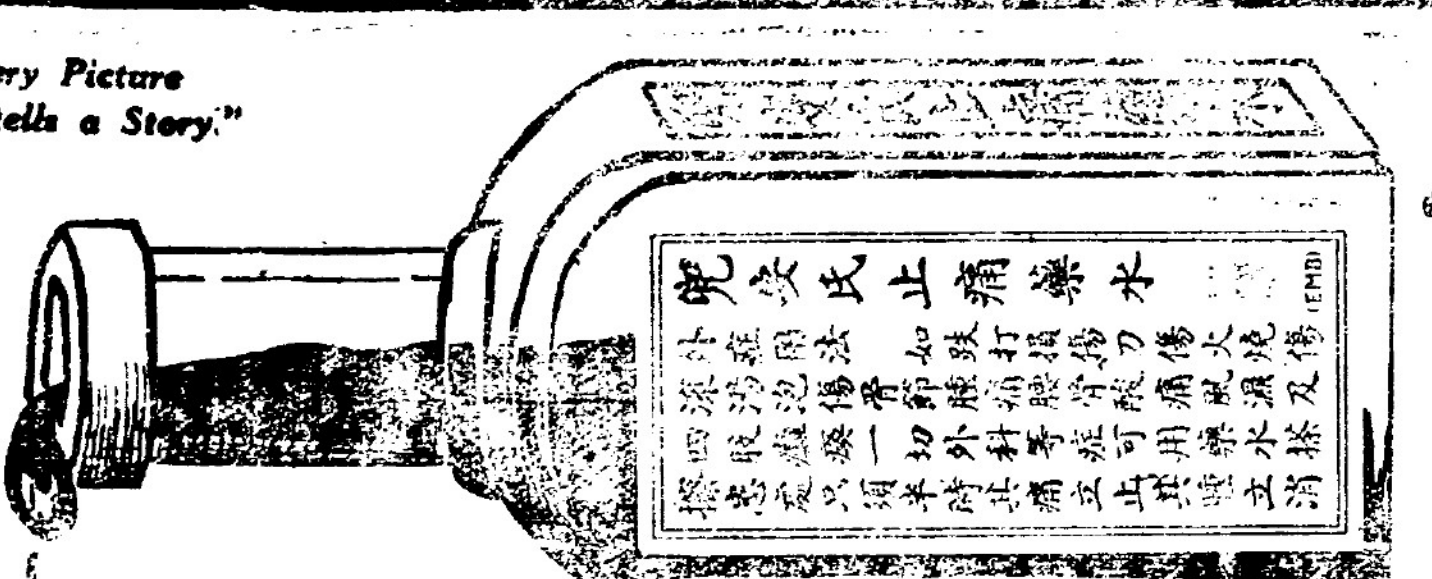 ery Picture
tells a Story."
兜安氏止痛藥水
(EMB)
外症用法 如跌打損傷刀傷火燒傷
滾湯泡傷骨節腫痛腰骨酸痛風濕及
四肢癱瘓一切外科等症可用藥水搽
擦患處只須半時其痛立止其腫立消